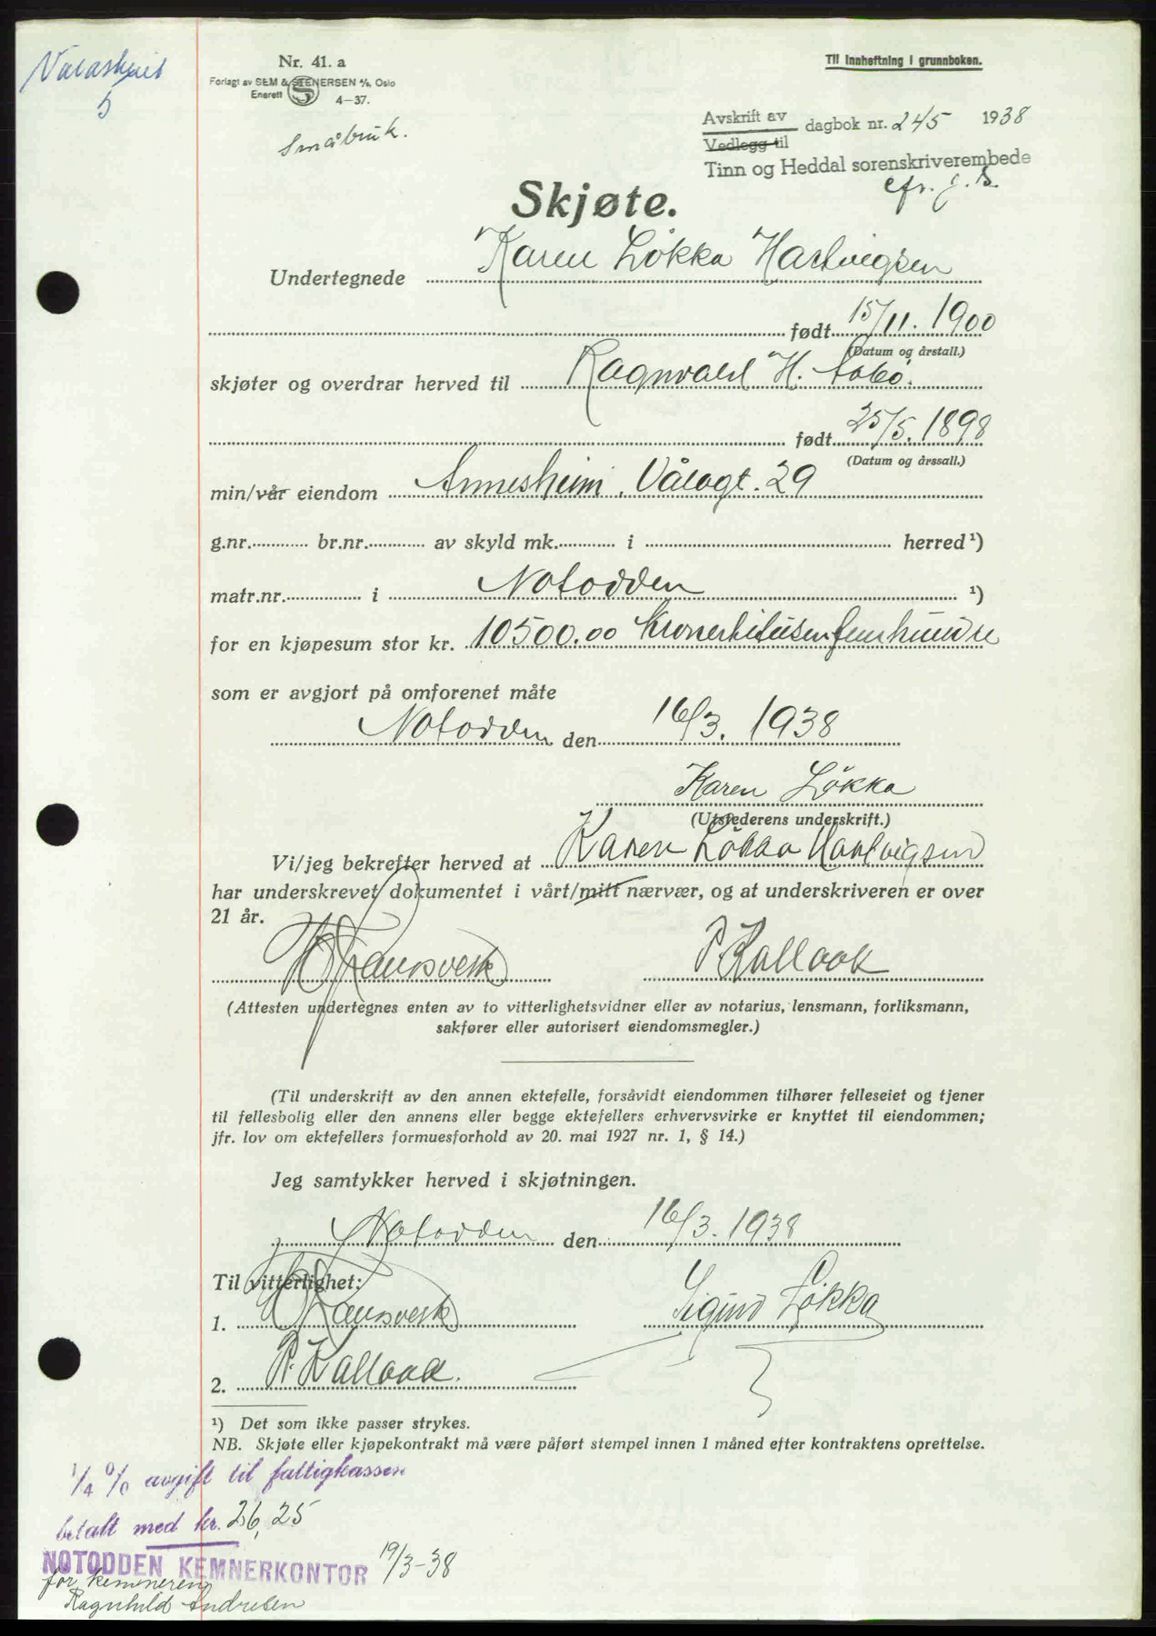 5
Nr. 41. a
Forlagt av SEM & STENERSEN A/S, Oslo
Enerett 4—37.
Småbruk.
Til innheftning i grunnboken.
Avskrift av
Vedlegg til
dagbok nr. 245 1938
Tinn og Heddal sorenskriverembede
cfr. j. B.
Skjøte.
Undertegnede Karen Løkka Hartvigsen
født 15/11. 1900
(Datum og årstall.)
skjøter og overdrar herved til Ragnvald H. Aabø.
født 25/5. 1898
(Datum og årssall.)
min/vår eiendom Annesheim, Vålogt. 29
g.nr. br.nr. av skyld mk. i herred¹)
matr.nr. i Notodden ¹)
for en kjøpesum stor kr. 10500.00 Kronertitusenfemhundre
som er avgjort på omforenet måte
Notodden den 16/3. 1938
Karen Løkka
(Utstederens underskrift.)
Vi/jeg bekrefter herved at Karen Løkka Hartvigsen
har underskrevet dokumentet i vårt/mitt nærvær, og at underskriveren er over
21 år.
P. Kallaak
(Attesten undertegnes enten av to vitterlighetsvidner eller av notarius, lensmann, forliksmann,
sakfører eller autorisert eiendomsmegler.)
(Til underskrift av den annen ektefelle, forsåvidt eiendommen tilhører felleseiet og tjener
til fellesbolig eller den annens eller begge ektefellers erhvervsvirke er knyttet til eiendommen;
jfr. lov om ektefellers formuesforhold av 20. mai 1927 nr. 1, § 14.)
Jeg samtykker herved i skjøtningen.
Notodden den 16/3. 1938
Til vitterlighet:
1. Sigurd Løkka
2. P. Kallaak.
¹) Det som ikke passer strykes.
NB. Skjøte eller kjøpekontrakt må være påført stempel innen 1 måned efter kontraktens oprettelse.
1/4 % avgift til fattigkassen
betalt med kr. 26,25
NOTODDEN KEMNERKONTOR 19/3-38
for kemneren
Ragnhild Andresen